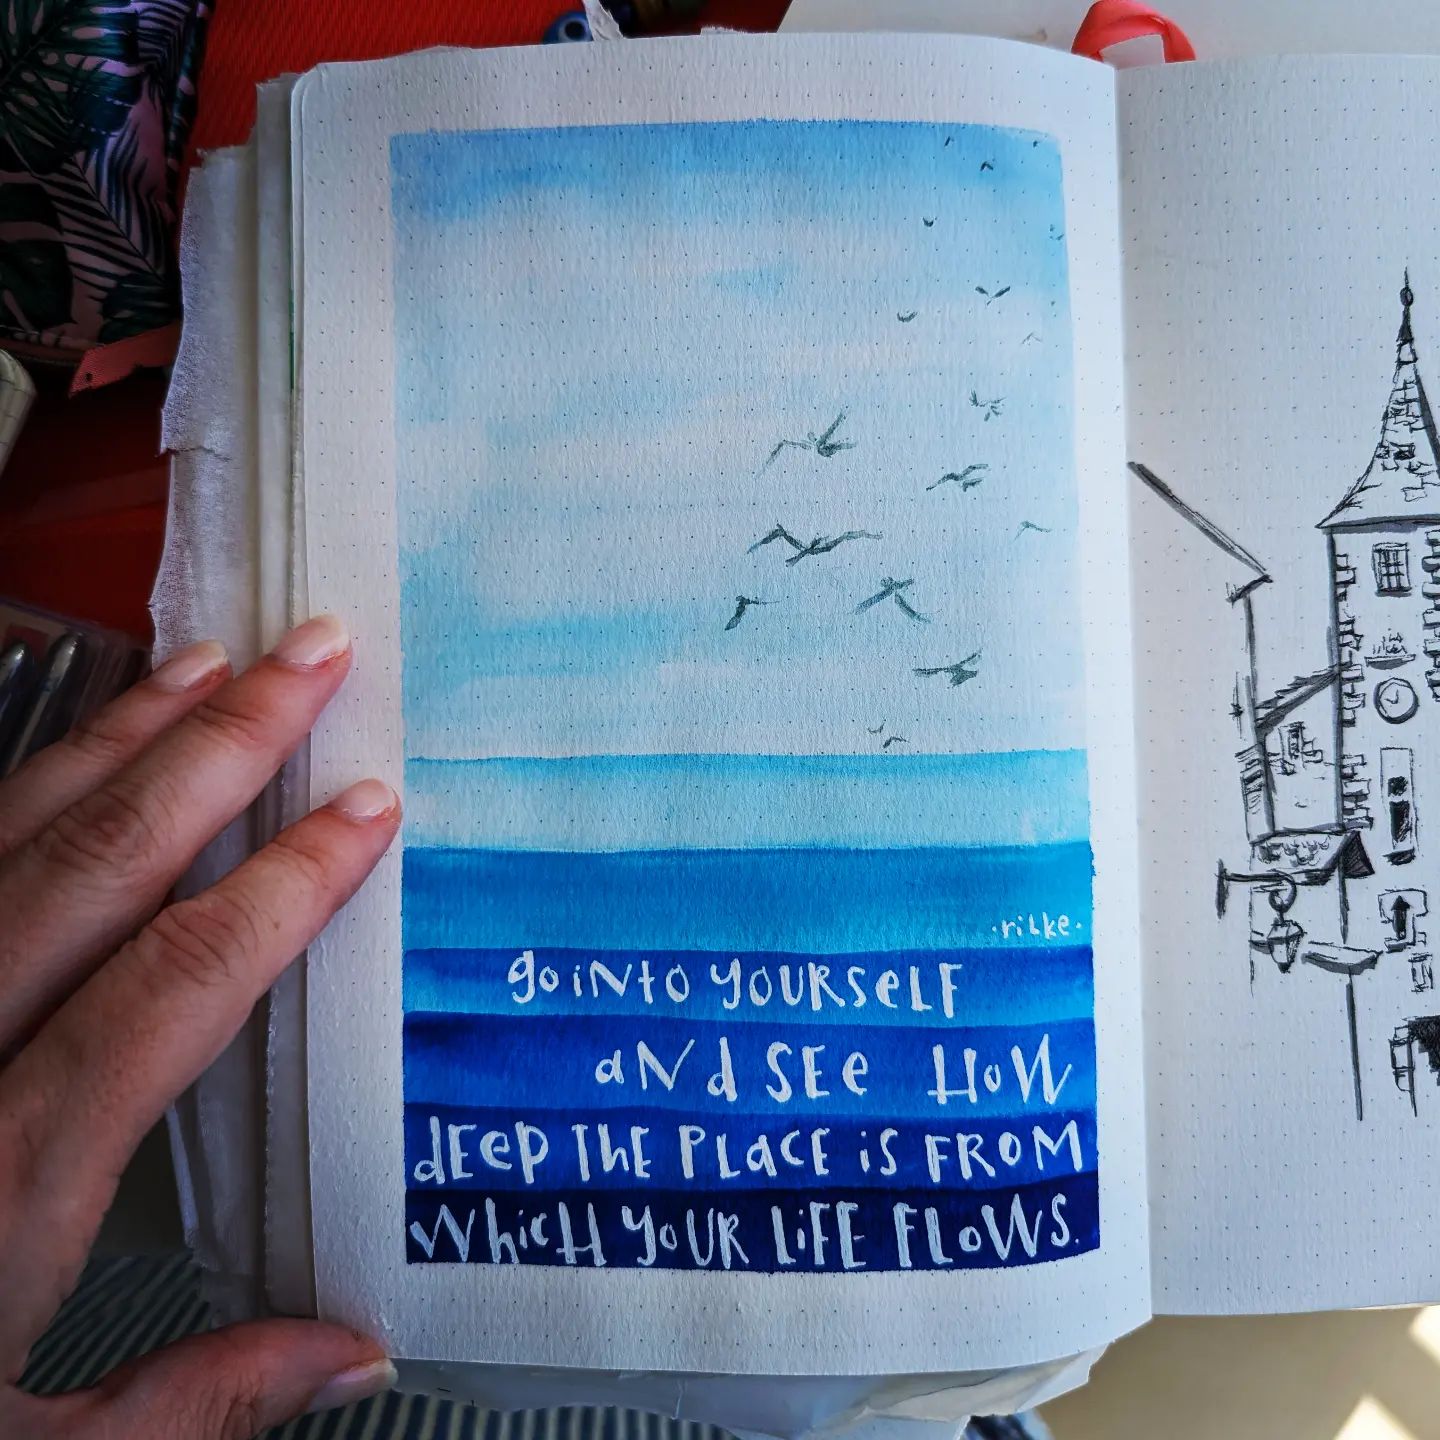 ·rilke·
go iNto yOURseLF
aNd SEe HoW
dEep ThE PLacE iS FROM
WhicH yOUR LiFE FLoWS.